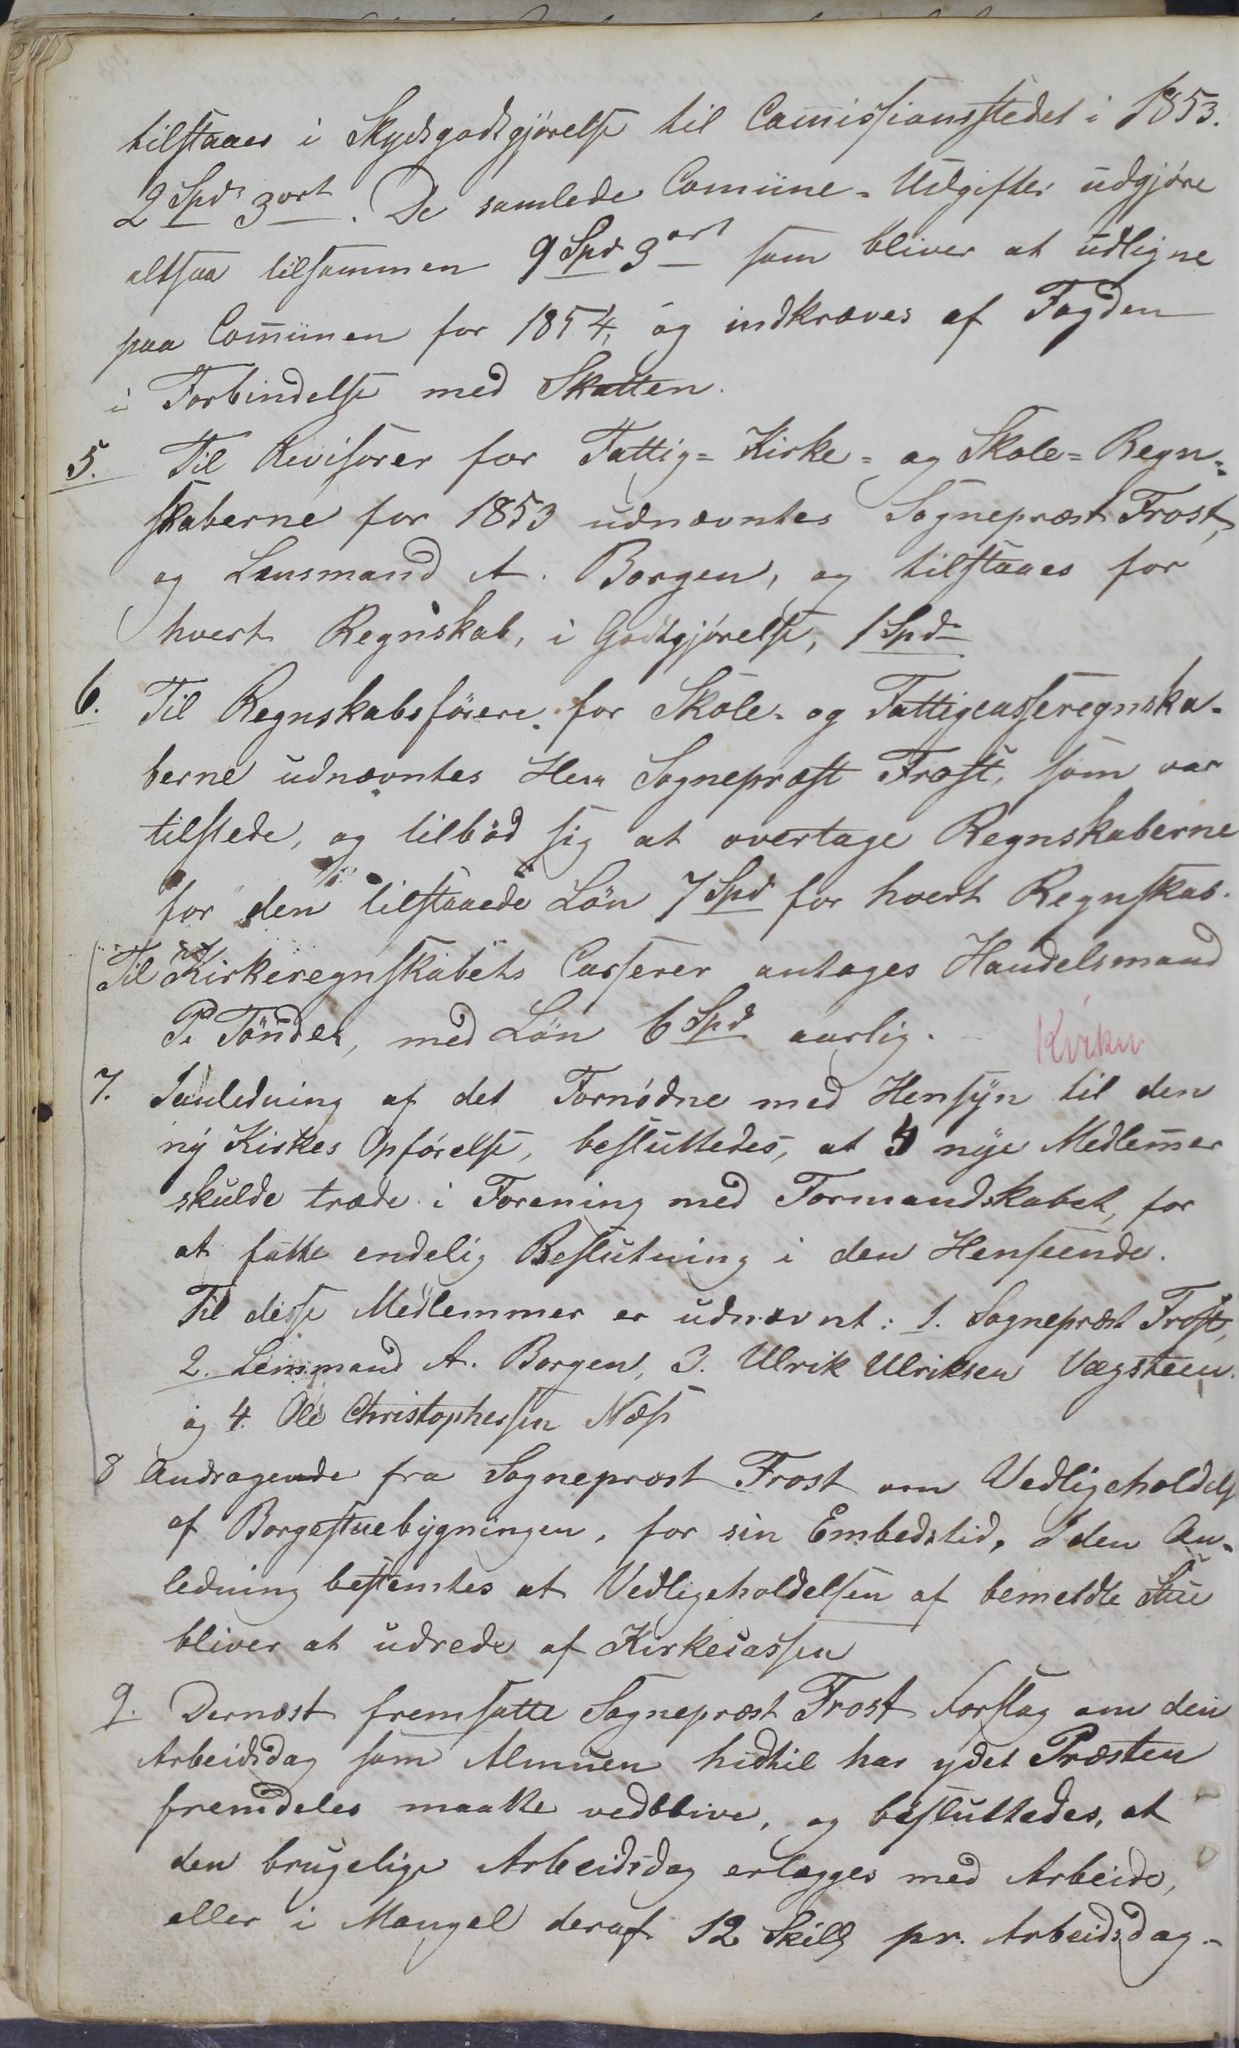 tilstaaes i Skydsgodtgjørelse til Comissionsstedet i 1853.
2 Spd 3 ort. De samlede Comune-Udgifter udgjøre
altsaa tilsammen 9 Spd 3 ort som bliver at udligne
paa Comunen for 1854, og indkræves af Fogden
i Forbindelse med Skatten.
5. Til Revisorer for Fattig= Kirke= og Skole=Regn=
skaberne for 1853 udnævntes Sognepræst Frost,
og Lensmand A. Borgen, og tilstaaes for
hvert Regnskab, i Godtgjørelse, 1 Spd
6. Til Regnskabsförere for Skole- og Fattigcasseregnska-
berne udnævntes Herr Sognepræst Frost, som var
tilstede, og tilböd sig at overtage Regnskaberne
for den tilstaaede Lön 7 Spd for hvert Regnskab.
Til Kirkeregnskabets Casserer antages Handelsmand
P. Tönder, med Lön 6 Spd aarlig.
Kirken
7. I anledning af det Fornødne med Hensyn til den
ny Kirkes Opførelse, besluttedes, at 4 nye Medlemer
skulde træde i Forening med Formandskabet, for
at fatte endelig Beslutning i den Henseende.
Til disse Medlemmer er udnævnt: 1. Sognepræst Frost,
2. Lensmand A. Borgen, 3. Ulrik Ulriksen Vægsteen
og 4 Ole Christophersen Næss
8 Andragende fra Sognepræst Frost om Vedligeholdelse
af Borgestuebygningen, for sin Embedstid, I den An-
ledning bestemtes at Vedligeholdelsen af bemeldte Stue
bliver at udrede af Kirkecassen
9. Dernæst fremsatte Sognepræst Frost Forslag om den
Arbeidsdag som Almuen hidtil har ydet Præsten
fremdeles maatte vedblive, og besluttedes, at
den brugelige Arbeidsdag erlægges med Arbeide,
eller i Mangel deraf 12 Skill pr. Arbeidsdag.-